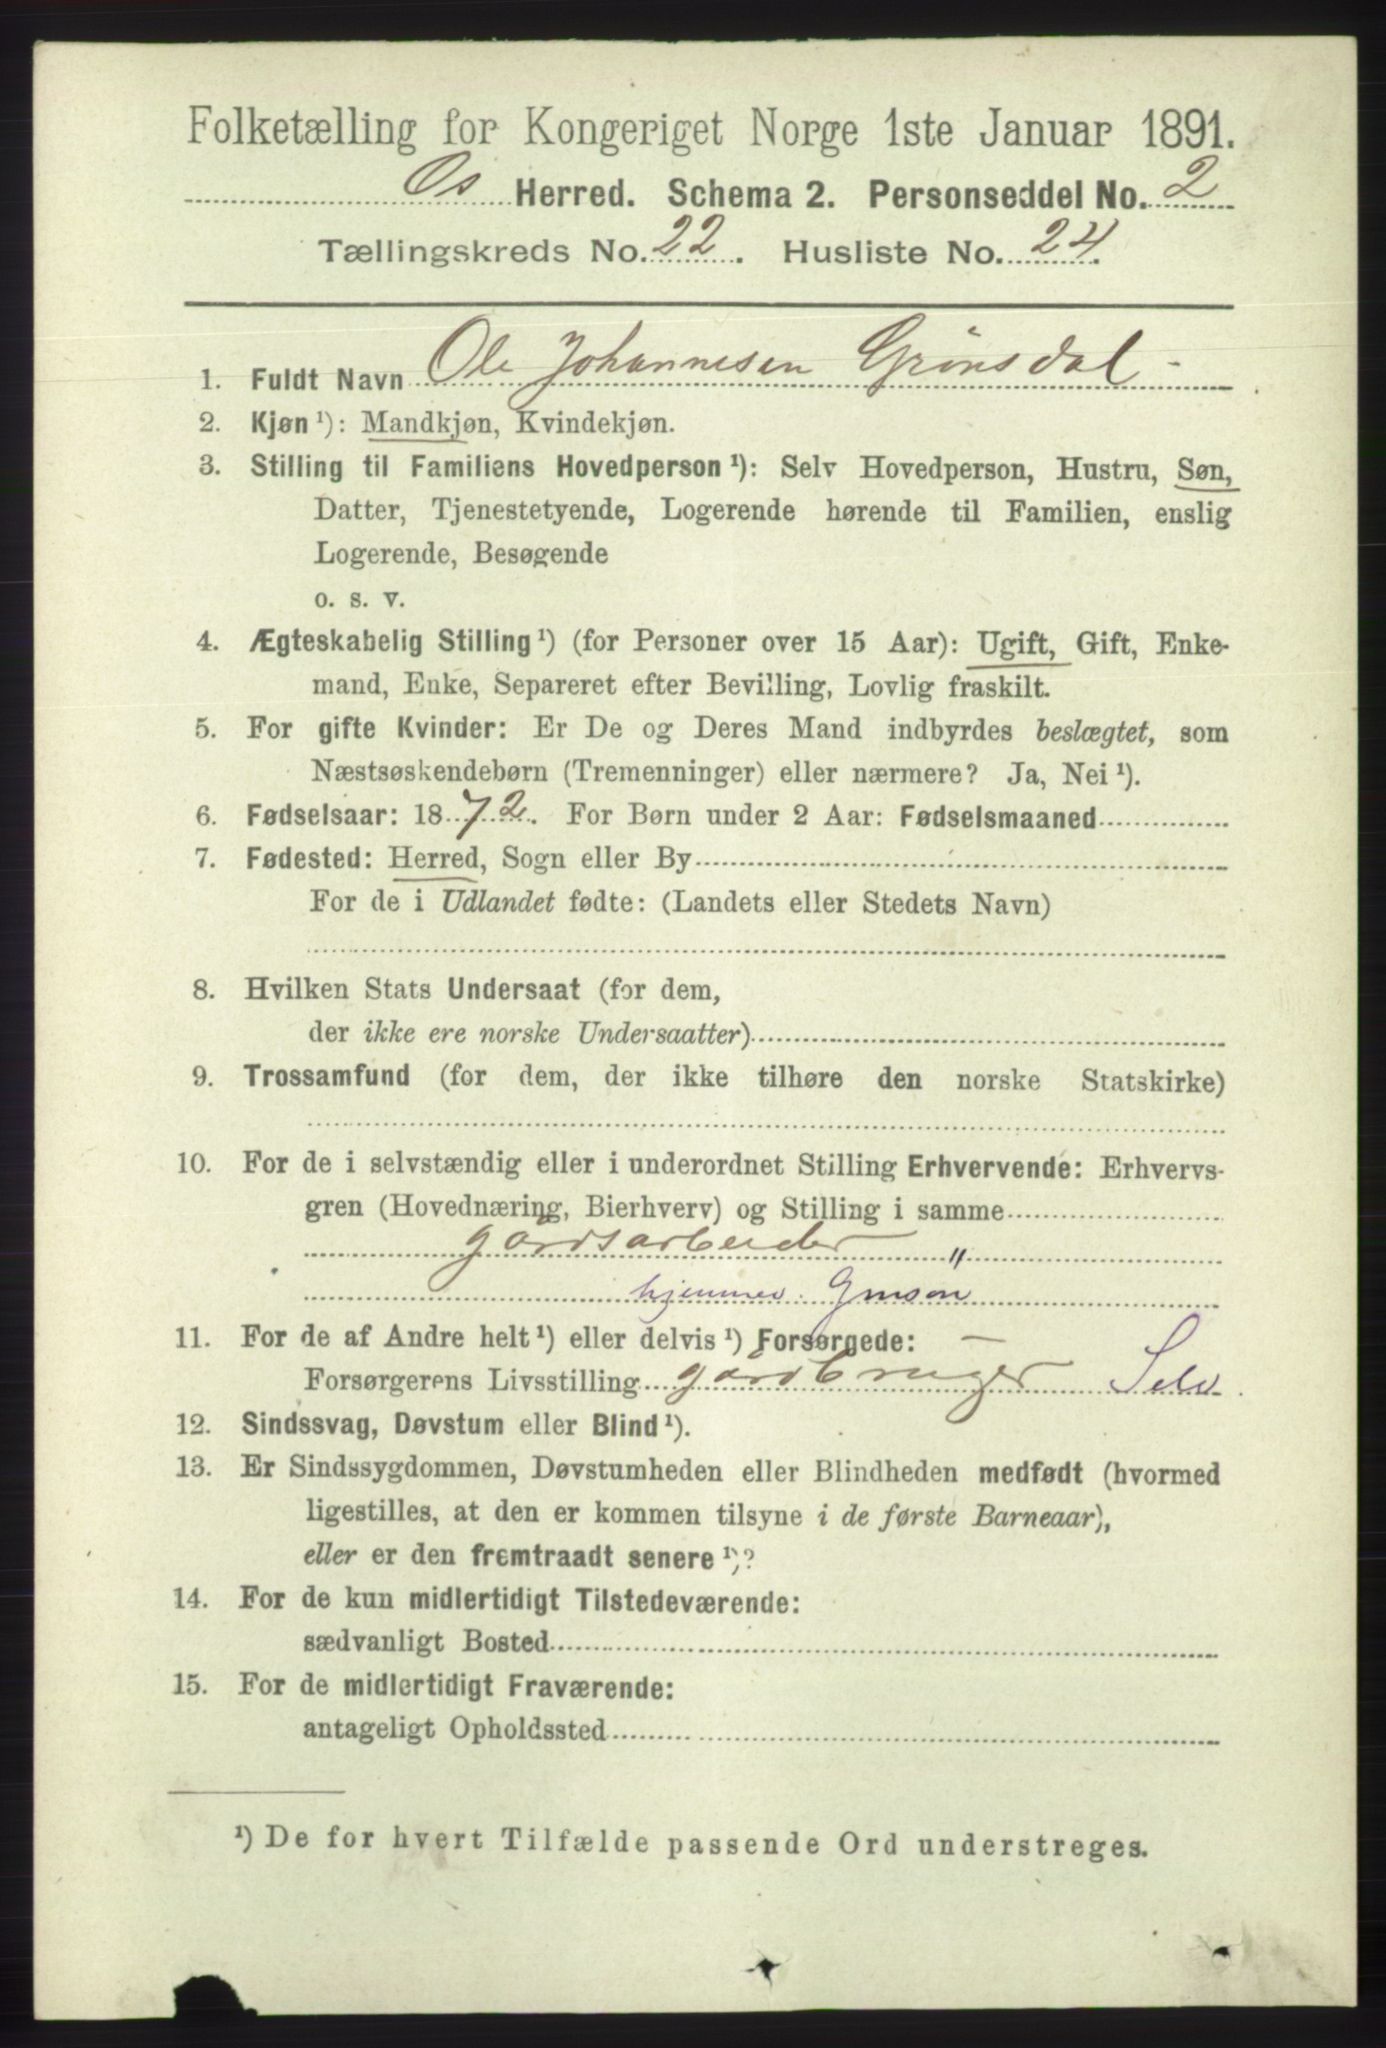 Folketælling for Kongeriget Norge 1ste Januar 1891.
Os Herred. Schema 2. Personseddel No. 2
Tællingskreds No. 22. Husliste No. 24.
1. Fuldt Navn Ole Johannesen Grönsdal
2. Kjøn ¹): Mandkjøn, Kvindekjøn.
3. Stilling til Familiens Hovedperson ¹): Selv Hovedperson, Hustru, Søn,
Datter, Tjenestetyende, Logerende hørende til Familien, enslig
Logerende, Besøgende
o. s. v.
4. Ægteskabelig Stilling ¹) (for Personer over 15 Aar): Ugift, Gift, Enke-
mand, Enke, Separeret efter Bevilling, Lovlig fraskilt.
5. For gifte Kvinder: Er De og Deres Mand indbyrdes beslægtet, som
Næstsøskendebørn (Tremenninger) eller nærmere? Ja, Nei ¹).
6. Fødselsaar: 1872. For Børn under 2 Aar: Fødselsmaaned
7. Fødested: Herred, Sogn eller By
For de i Udlandet fødte: (Landets eller Stedets Navn)
8. Hvilken Stats Undersaat (for dem,
der ikke ere norske Undersaatter)
9. Trossamfund (for dem, der ikke tilhøre den norske Statskirke)
10. For de i selvstændig eller i underordnet Stilling Erhvervende: Erhvervs-
gren (Hovednæring, Bierhverv) og Stilling i samme
gårdsarbeider "
hjemmev. Gmsøn
11. For de af Andre helt ¹) eller delvis ¹) Forsørgede:
Forsørgerens Livsstilling gårdbruger Selv.
12. Sindssvag, Døvstum eller Blind ¹).
13. Er Sindssygdommen, Døvstumheden eller Blindheden medfødt (hvormed
ligestilles, at den er kommen tilsyne i de første Barneaar),
eller er den fremtraadt senere ¹)?
14. For de kun midlertidigt Tilstedeværende:
sædvanligt Bosted
15. For de midlertidigt Fraværende:
antageligt Opholdssted
¹) De for hvert Tilfælde passende Ord understreges.